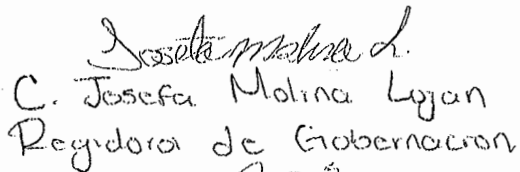 Josefa Molina L.
C. Josefa Molina Lujan
Regidora de Gobernacion